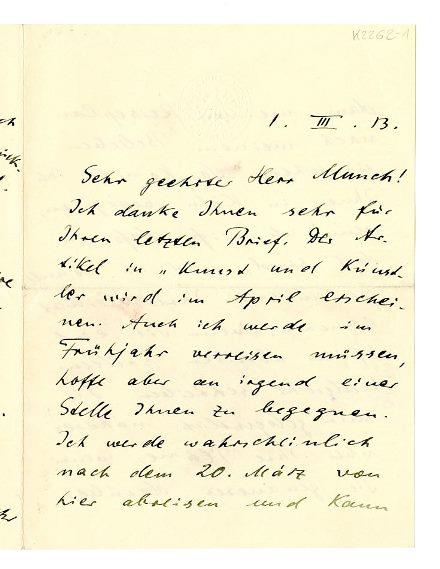 K2262-1
1. III. 13.
Sehr geehrter Herr Munch!
Ich danke Ihnen sehr für
Ihren letzten Brief. Der Ar-
tikel in „Kunst und Künst-
ler wird im April erschei-
nen. Auch ich werde im
Frühjahr verreisen müssen,
hoffe aber an irgend einer
Stelle Ihnen zu begegnen.
Ich werde wahrscheinlich
nach dem 20. März von
hier abreisen und kann